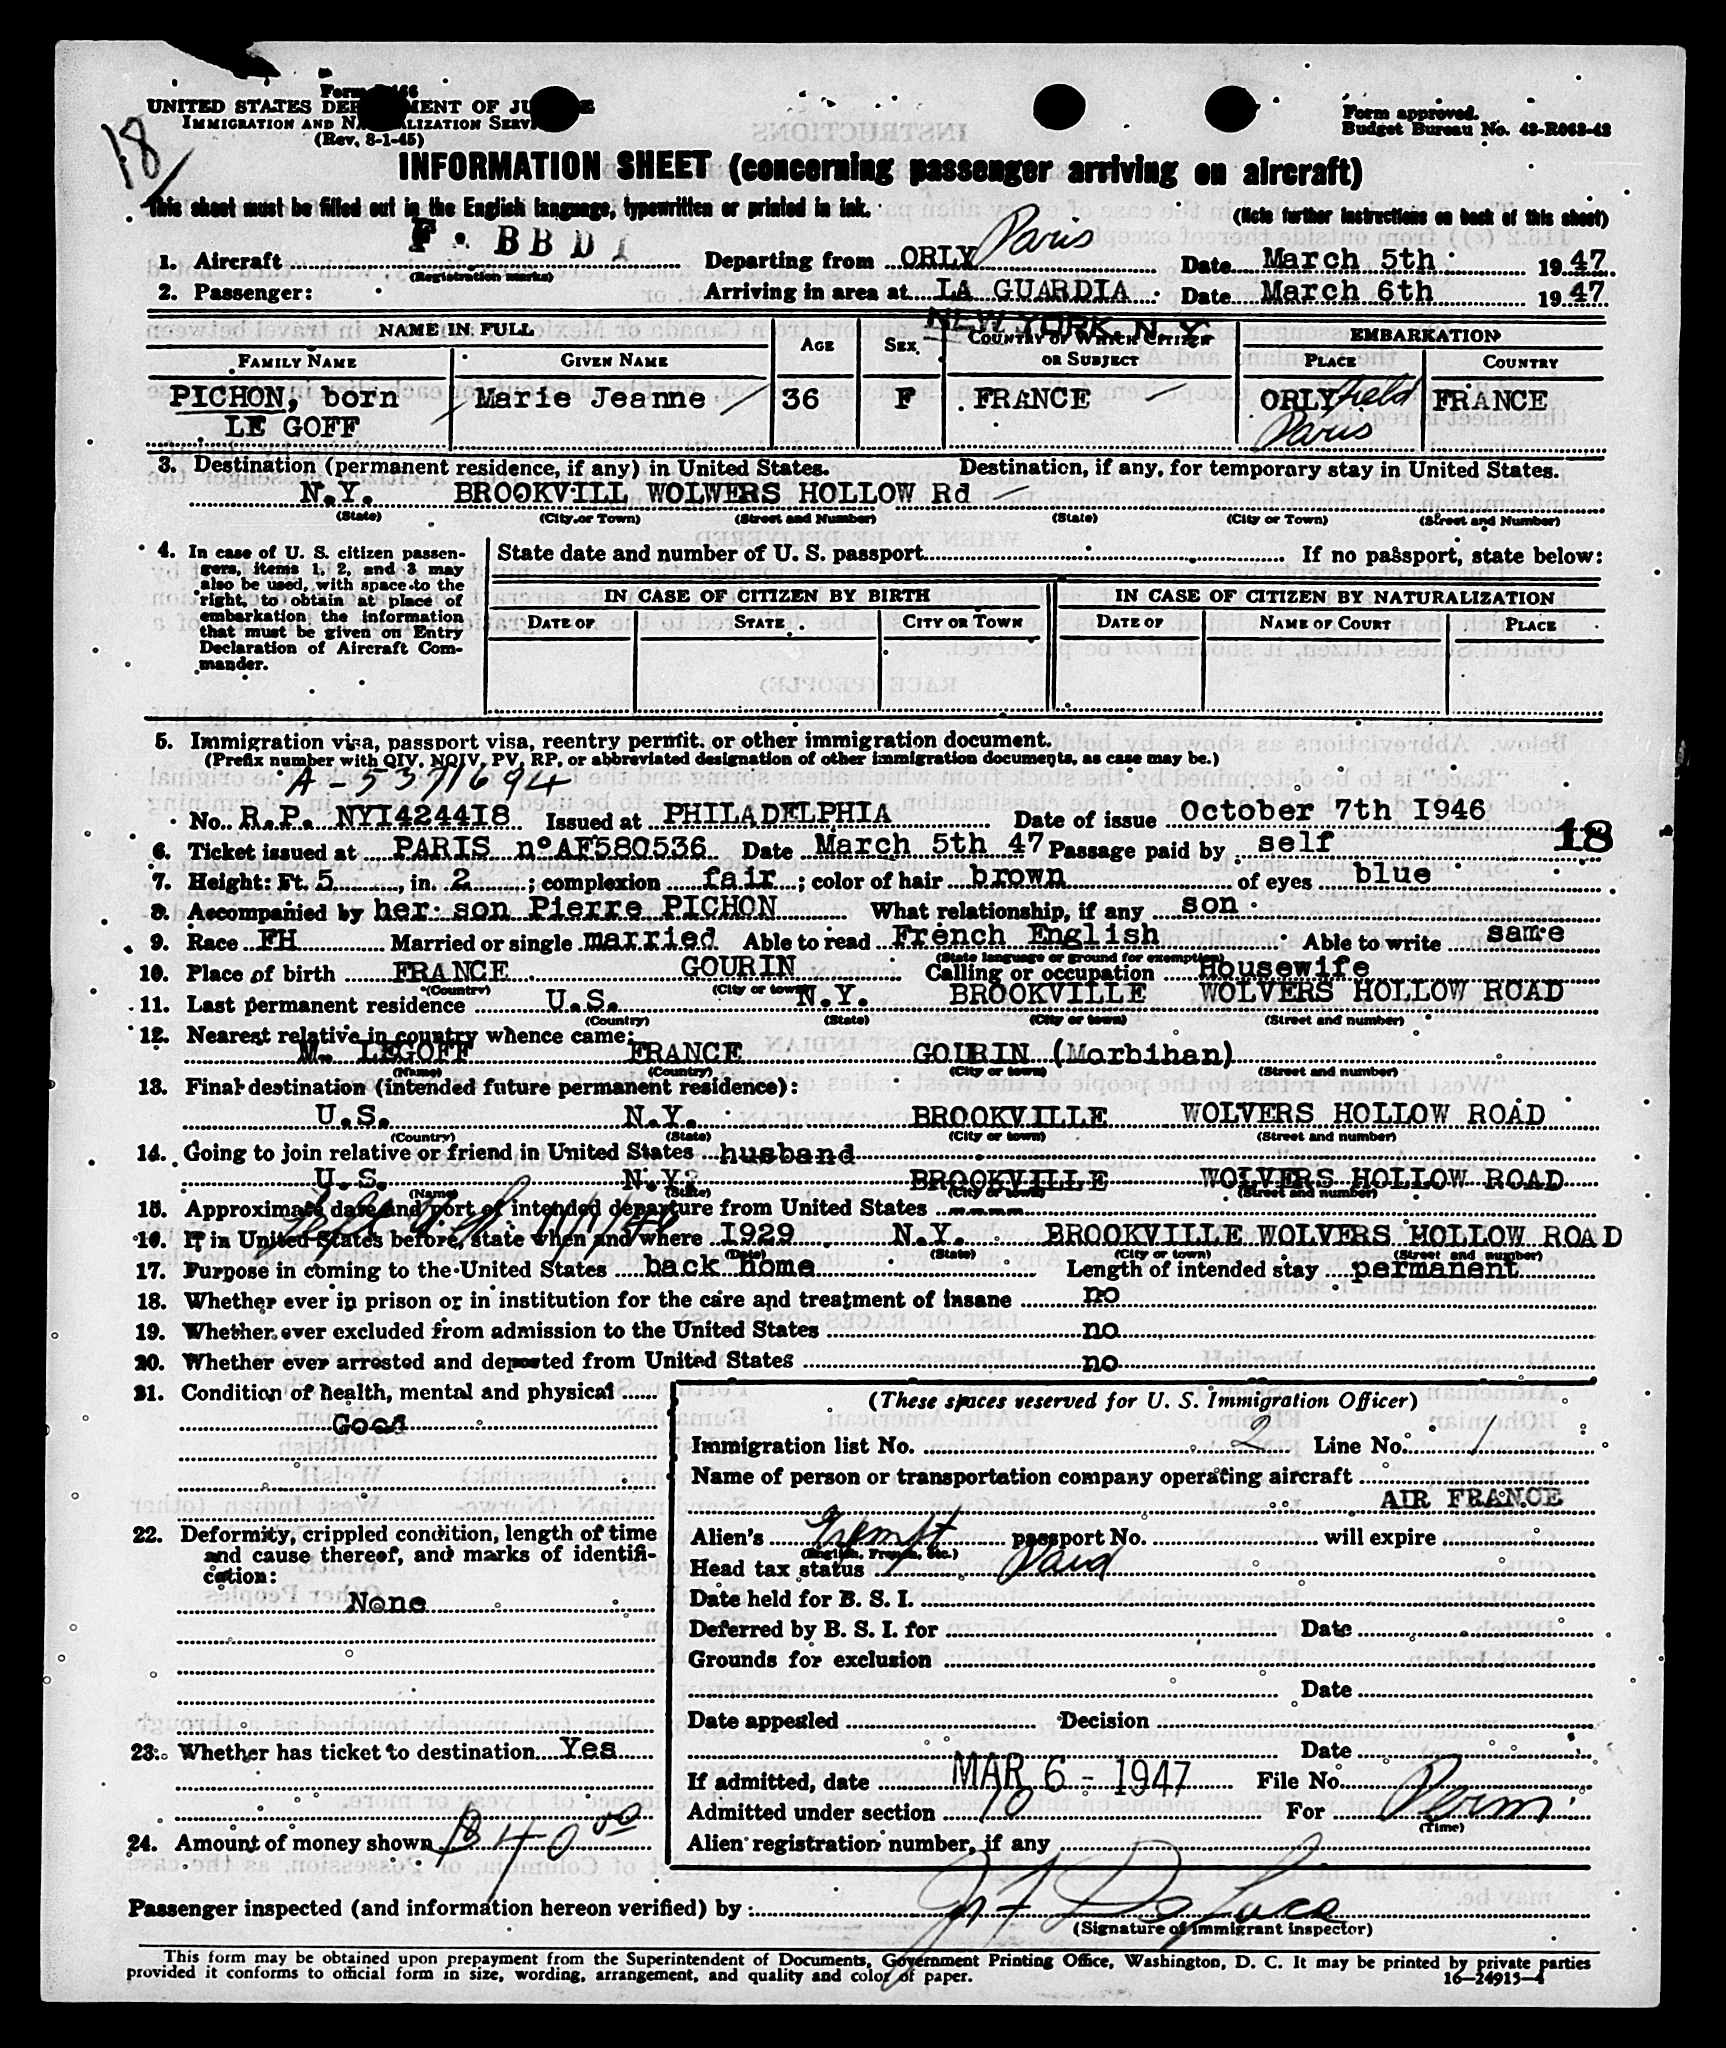 18
UNITED STATES DEPARTMENT OF JUSTICE
IMMIGRATION AND NATURALIZATION SERVICE
(Rev. 8-1-45)
Form approved.
Budget Bureau No. 43-R063-43
INFORMATION SHEET (concerning passenger arriving on aircraft)
This sheet must be filled out in the English language, typewritten or printed in ink. (Note further instructions on back of this sheet)
1. Aircraft F. BBDI Departing from ORLY Paris Date March 5th 1947
(Registration marks)
2. Passenger: Arriving in area at LA GUARDIA Date March 6th 1947
NEW YORK. N.Y.
NAME IN FULL AGE SEX COUNTRY OF WHICH CITIZEN OR SUBJECT EMBARKATION
FAMILY NAME GIVEN NAME PLACE COUNTRY
PICHON, born Marie Jeanne 36 F FRANCE ORLY field FRANCE
LE GOFF Paris
3. Destination (permanent residence, if any) in United States. Destination, if any, for temporary stay in United States.
N.Y. BROOKVILL WOLWERS HOLLOW Rd —
(State) (City or Town) (Street and Number) (State) (City or Town) (Street and Number)
4. In case of U. S. citizen passen- State date and number of U. S. passport If no passport, state below:
gers, items 1, 2, and 3 may
also be used, with space to the
right, to obtain at place of
embarkation the information
that must be given on Entry
Declaration of Aircraft Com-
mander.
IN CASE OF CITIZEN BY BIRTH IN CASE OF CITIZEN BY NATURALIZATION
DATE OF STATE CITY OR TOWN DATE OF NAME OF COURT PLACE
5. Immigration visa, passport visa, reentry permit, or other immigration document.
(Prefix number with QIV, NQIV, PV, RP, or abbreviated designation of other immigration documents, as case may be.)
A-5371694
No. R.P. NYI424418 Issued at PHILADELPHIA Date of issue October 7th I946
18
6. Ticket issued at PARIS n°AF580536 Date March 5th 47 Passage paid by self
7. Height: Ft. 5, in. 2; complexion fair; color of hair brown of eyes blue
8. Accompanied by her son Pierre PICHON What relationship, if any son
9. Race FH Married or single married Able to read French English Able to write same
(State language or ground for exemption)
10. Place of birth FRANCE GOURIN Calling or occupation Housewife
(Country) (City or town)
11. Last permanent residence U.S. N.Y. BROOKVILLE WOLVERS HOLLOW ROAD
(Country) (State) (City or town) (Street and number)
12. Nearest relative in country whence came:
M. LEGOFF FRANCE GOURIN (Morbihan)
(Name) (Country) (City or town) (Street and number)
13. Final destination (intended future permanent residence):
U.S. N.Y. BROOKVILLE WOLVERS HOLLOW ROAD
(Country) (State) (City or town) (Street and number)
14. Going to join relative or friend in United States husband
U.S. N.Y. BROOKVILLE WOLVERS HOLLOW ROAD
(Name) (State) (City or town) (Street and number)
15. Approximate date and port of intended departure from United States ----
16. If in United States before, state when and where I929 N.Y. BROOKVILLE WOLVERS HOLLOW ROAD
(Date) (State) (City or town) (Street and number)
17. Purpose in coming to the United States back home Length of intended stay permanent
18. Whether ever in prison or in institution for the care and treatment of insane no
19. Whether ever excluded from admission to the United States no
20. Whether ever arrested and deported from United States no
21. Condition of health, mental and physical
Good
22. Deformity, crippled condition, length of time
and cause thereof, and marks of identifi-
cation:
None
23. Whether has ticket to destination Yes
24. Amount of money shown $40 00
(These spaces reserved for U. S. Immigration Officer)
Immigration list No. 2 Line No. 1
Name of person or transportation company operating aircraft
AIR FRANCE
Alien's Exempt passport No. will expire
(English, French, etc.)
Head tax status Paid
Date held for B. S. I.
Deferred by B. S. I. for Date
Grounds for exclusion
Date
Date appealed Decision
Date
If admitted, date MAR 6 - 1947 File No.
Admitted under section 10 For Perm.
(Time)
Alien registration number, if any
Passenger inspected (and information hereon verified) by:
(Signature of immigrant inspector)
This form may be obtained upon prepayment from the Superintendent of Documents, Government Printing Office, Washington, D. C. It may be printed by private parties
provided it conforms to official form in size, wording, arrangement, and quality and color of paper.
16—24915-4